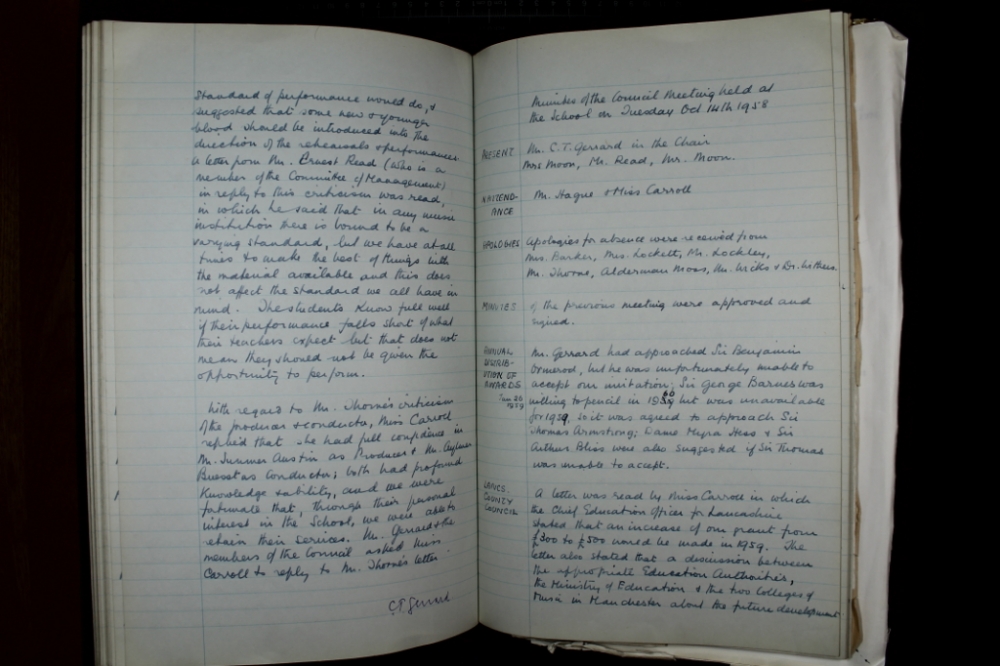 standard of performance would do, &
suggested that some new & younger
blood should be introduced into the
direction of the rehearsals & performances.
A letter from Mr. Ernest Read (who is a
member of the Committee of Management)
in reply to this criticism was read,
in which he said that in any music
institution there is bound to be a
varying standard, but we have at all
times to make the best of things with
the material available and this does
not affect the standard we all have in
mind. The students know full well
if their performance falls short of what
their teachers expect but that does not
mean they should not be given the
opportunity to perform.
With regard to Mr. Thorne's criticism
of the producer & conductor, Miss Carroll
replied that she had full confidence in
Mr. Sumner Austin as Producer & Mr. Aylmer
Buesst as Conductor; both had profound
knowledge & ability, and we were
fortunate that, through their personal
interest in the School, we were able to
retain their services. Mr. Gerrard & the
members of the Council asked Miss
Carroll to reply to Mr. Thorne's letter.
C.T. Gerrard
Minutes of the Council Meeting held at
the School on Tuesday Oct 14th 1958
PRESENT Mr. C.T. Gerrard in the Chair
Mrs Moon, Mr. Read, Mr. Moon.
N ATTEND-
ANCE Mr. Hague & Miss Carroll
APOLOGIES Apologies for absence were received from
Mrs. Barker, Mrs. Lockett, Mr. Lockley,
Mr. Thorne, Alderman Moss, Mr. Wicks & Dr.
MINUTES of the previous meeting were approved and
signed.
ANNUAL Mr. Gerrard had approached Sir Benjamin
DISTRIB- Ormerod, but he was unfortunately unable to
UTION OF accept our invitation; Sir George Barnes was
AWARDS willing to pencil in 1960 but was unavailable
Jan 26
1959 for 1959, so it was agreed to approach Sir
Thomas Armstrong; Dame Myra Hess & Sir
Arthur Bliss were also suggested if Sir Thomas
was unable to accept.
LANCS. A letter was read by Miss Carroll in which
COUNTY the Chief Education Officer for Lancashire
COUNCIL stated that an increase of our grant from
£300 to £500 would be made in 1959. The
letter also stated that a discussion between
the appropriate Education Authorities,
the Ministry of Education & the two Colleges of
Music in Manchester about the future development